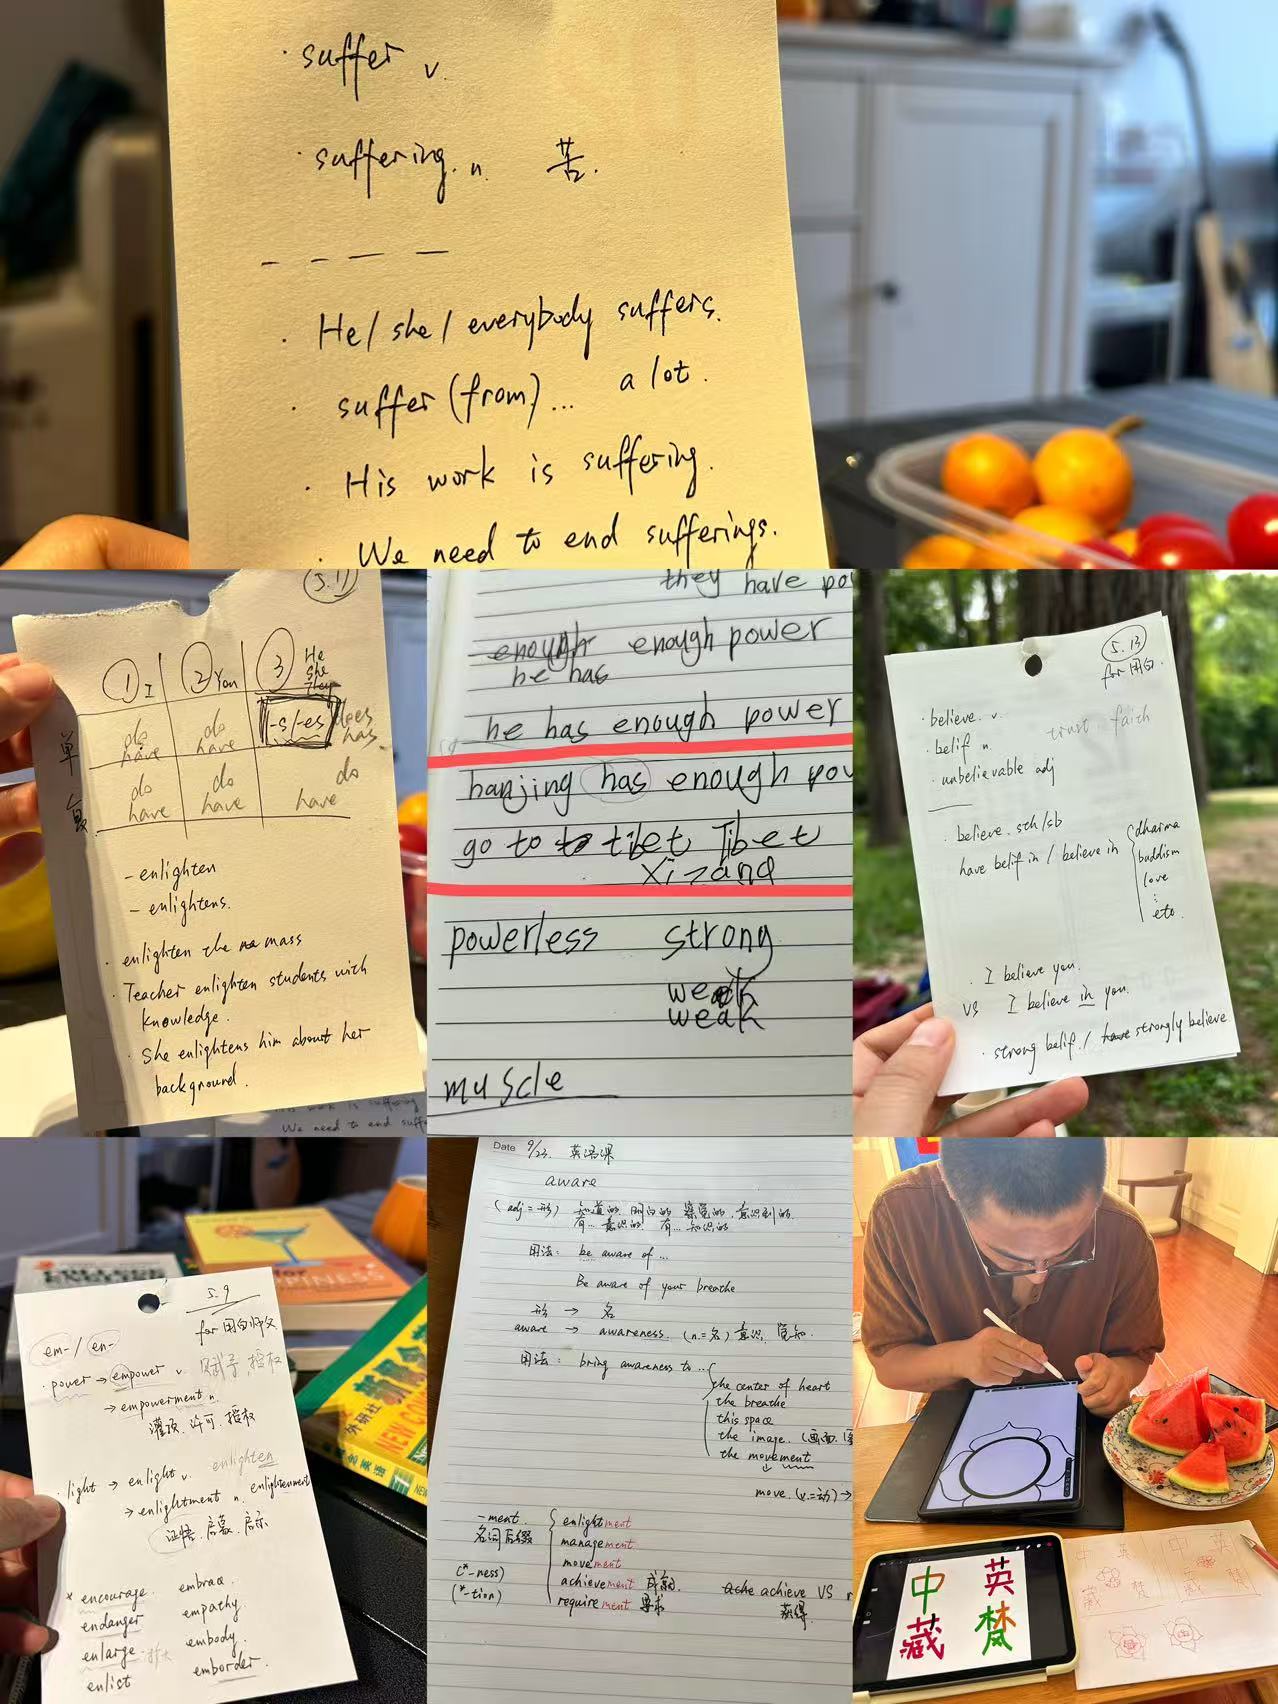 · suffer v.
· suffering. n. 苦.
· He/she/everybody suffers.
· suffer (from)... a lot.
· His work is suffering.
· We need to end sufferings.
5.11
① I ② You ③ He
She
They
单 do do -s/-es does
have have has
复 do do do
have have have
- enlighten
- enlightens.
· enlighten the mass
· Teacher enlighten students with
knowledge.
· She enlightens him about her
background.
his work is suffering
We need to end suff
they have po
enough enough power
he has
he has enough power
hanjing has enough pow
go to to tibet Tibet
Xizang
powerless strong
weak
weak
muscle
5.13
· believe. v.
· belif n. trust faith
· unbelievable adj
· believe. sth/sb
have belif in / believe in
dharma
buddism
love
etc.
· I believe you.
VS I believe in you.
· strong belif. / have strongly believe
5.9
em- / en-
· power → empower v. 赋予, 授权
→ empowerment n.
灌顶. 许可. 授权
· light → enlight v. enlighten
→ enlightment n. enlightenment
证悟. 启蒙. 启示
* encourage. embrace.
endanger empathy.
enlarge 扩大 embody.
enlist emborder.
外研社 新概念
NEW CO
Date 9/23. 英语课
aware
(adj = 形) 知道的. 明白的 察觉的. 意识到的.
有... 意识的 有... 知识的
用法: be aware of ...
Be aware of your breathe
形 → 名
aware → awareness. (n.=名) 意识, 觉知.
用法: bring awareness to...
the center of heart
the breathe
this space
the image. (画面.
the movement
move. (v.=动) →
-ment. enlightment
名词后缀 management
movement
(*-ness) achievement 成就. Ache achieve VS r
(*-tion) requirement 要求 获得.
中 英
藏 梵
中 英
藏 梵